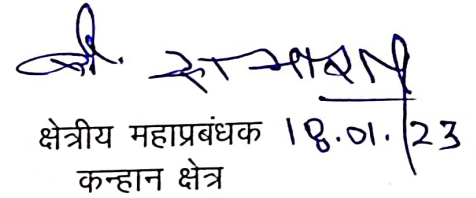 क्षेत्रीय महाप्रबंधक 18.01.23
कन्हान क्षेत्र